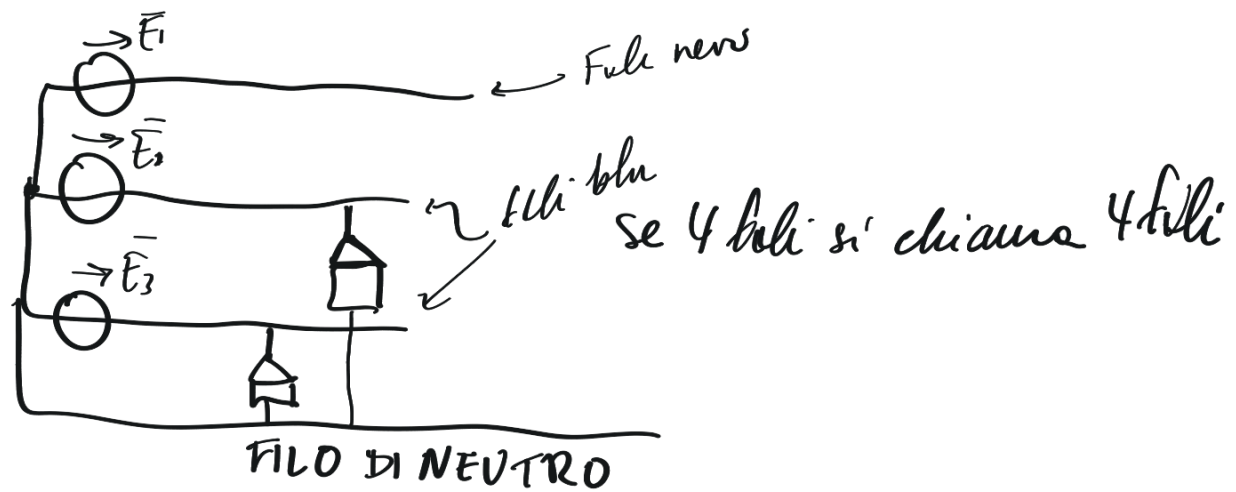 E1
Fili nero
E2
Fili blu
se 4 fili si chiama 4 fili
E3
FILO DI NEUTRO